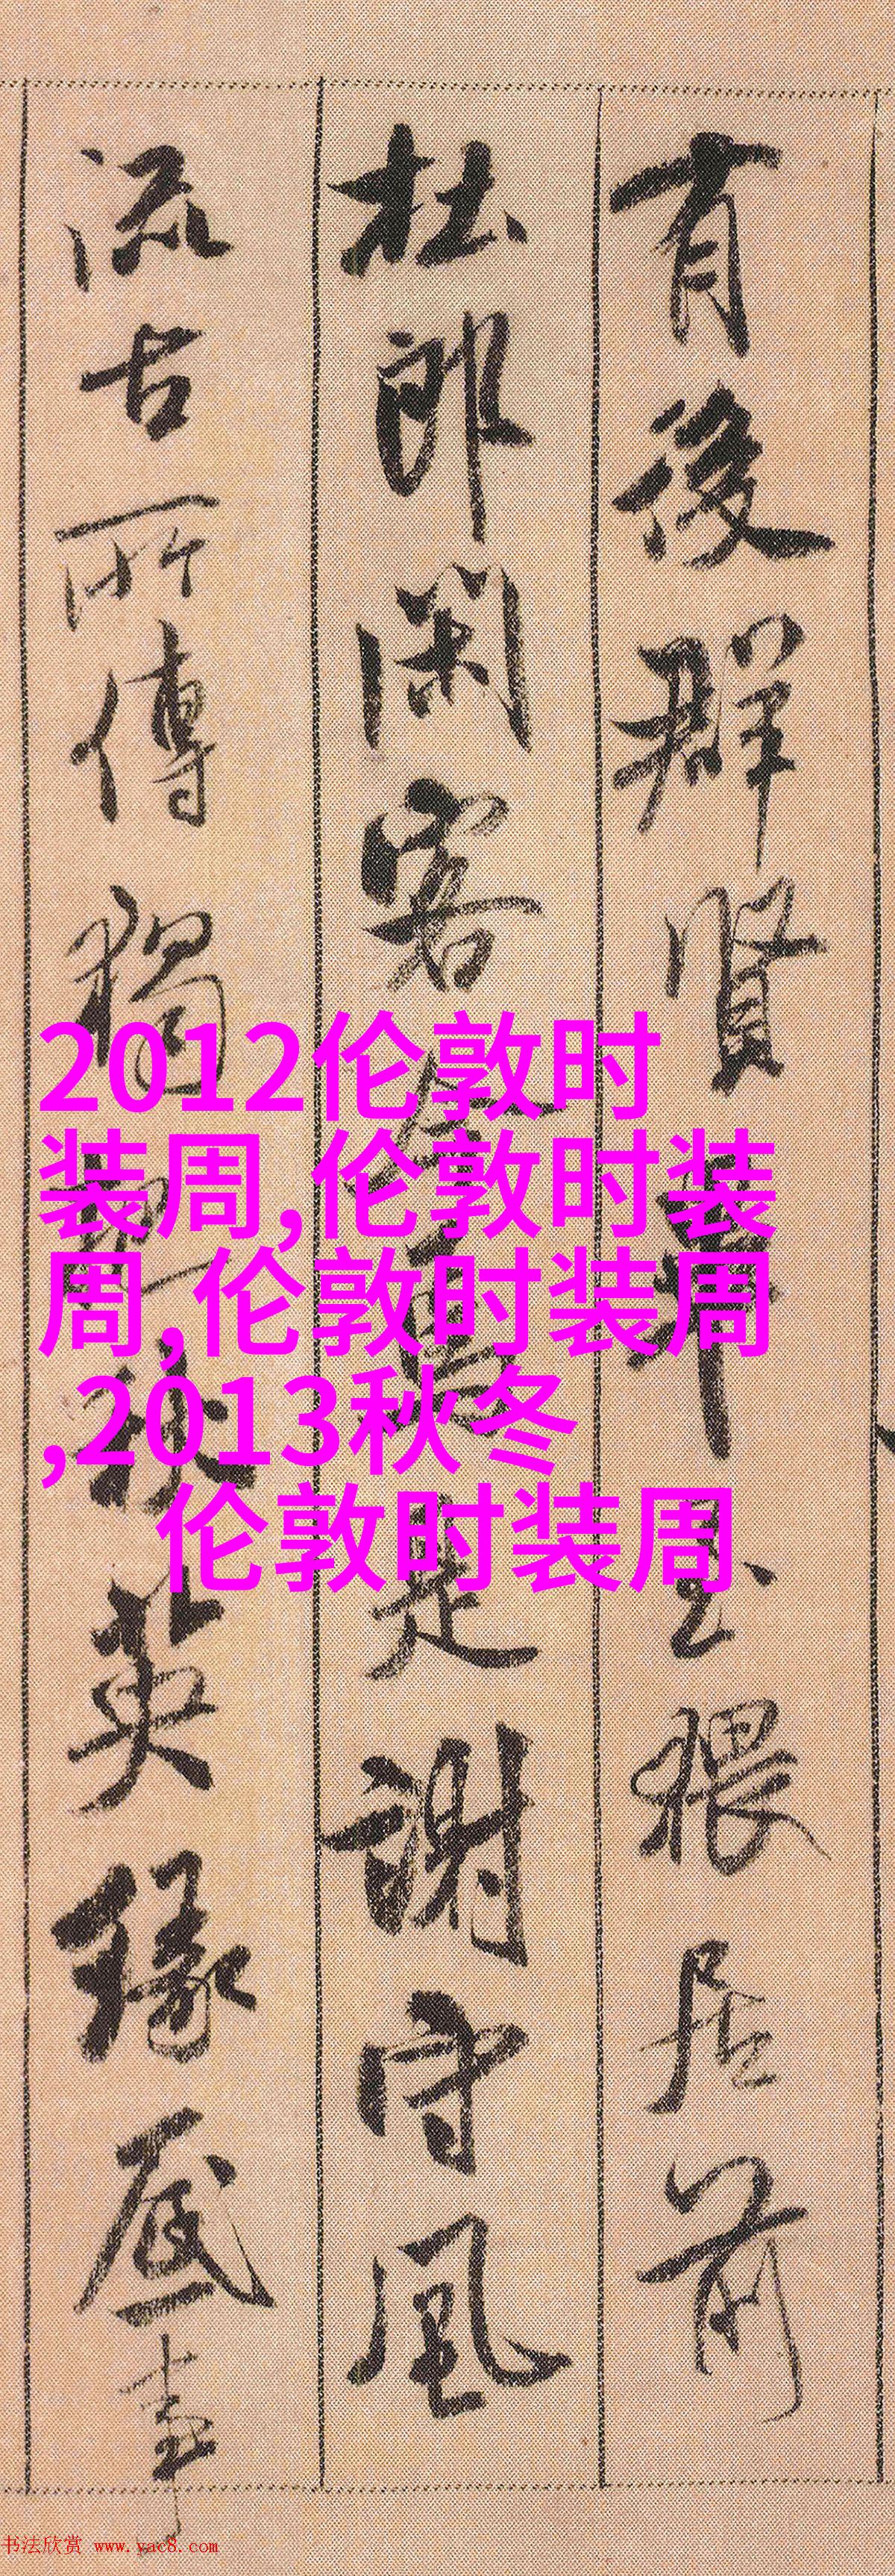 有後群賢畢至猥居前
杜郎閑客今焉是謝守風
流古所傳獨把秋英緣底事
2012伦敦时
装周,伦敦时装
周,伦敦时装周
,2013秋冬
伦敦时装周
书法欣赏 www.yac8.com